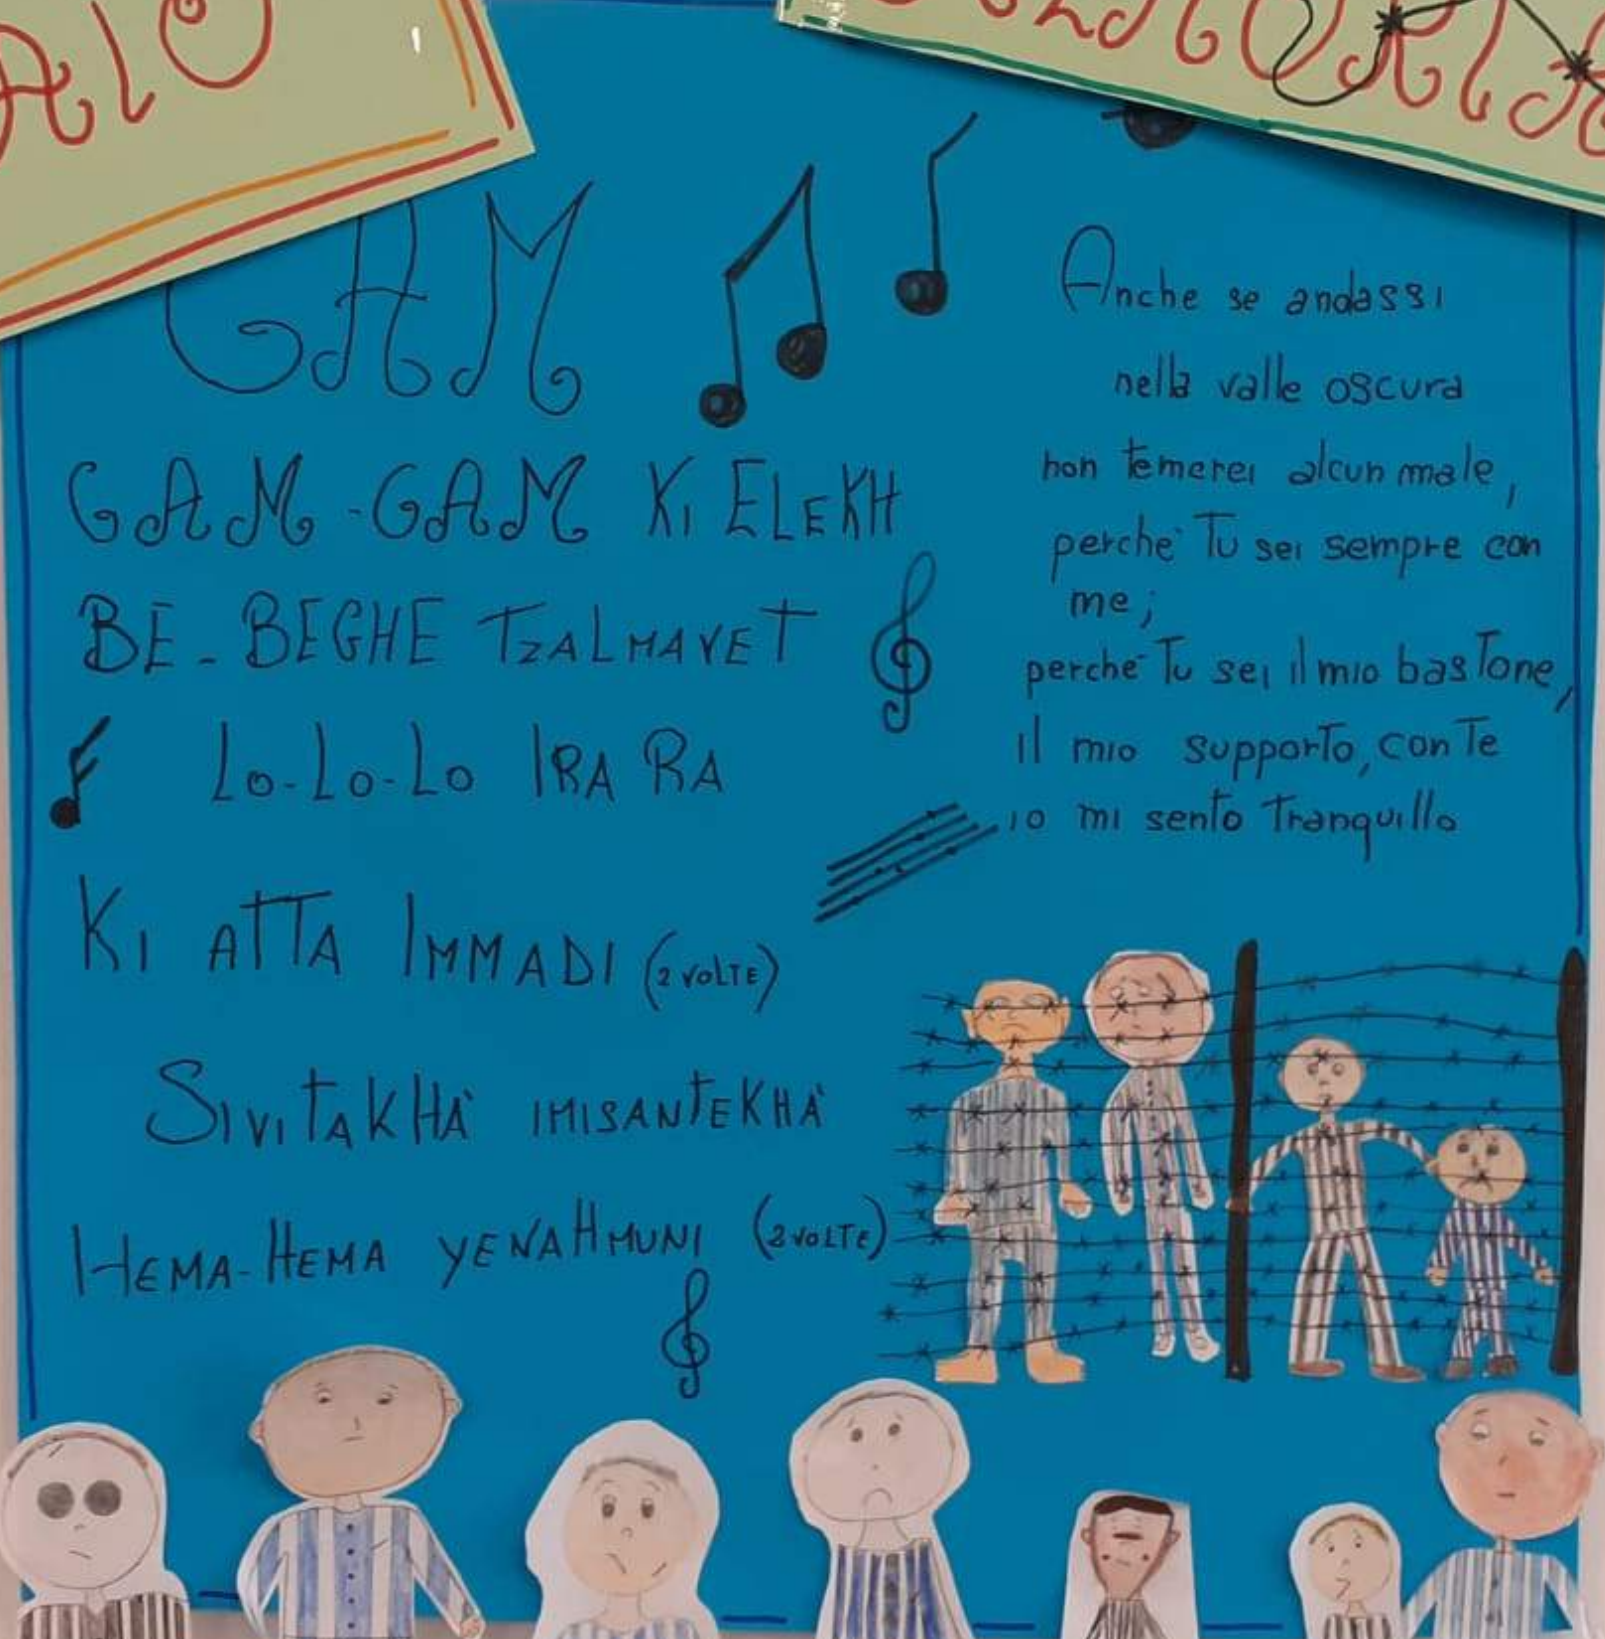 GAM
GAM-GAM KI ELEKH
BE-BEGHE TZALMAVET
LO-LO-LO IRA RA
KI ATTA IMMADI (2 VOLTE)
SIVITAKHÀ IMISANTEKHÀ
HEMA-HEMA YENAHMUNI (2 VOLTE)
Anche se andassi
nella valle oscura
non temerei alcun male,
perchè Tu sei sempre con
me;
perchè Tu sei il mio bastone,
il mio supporto, con Te
io mi sento tranquillo